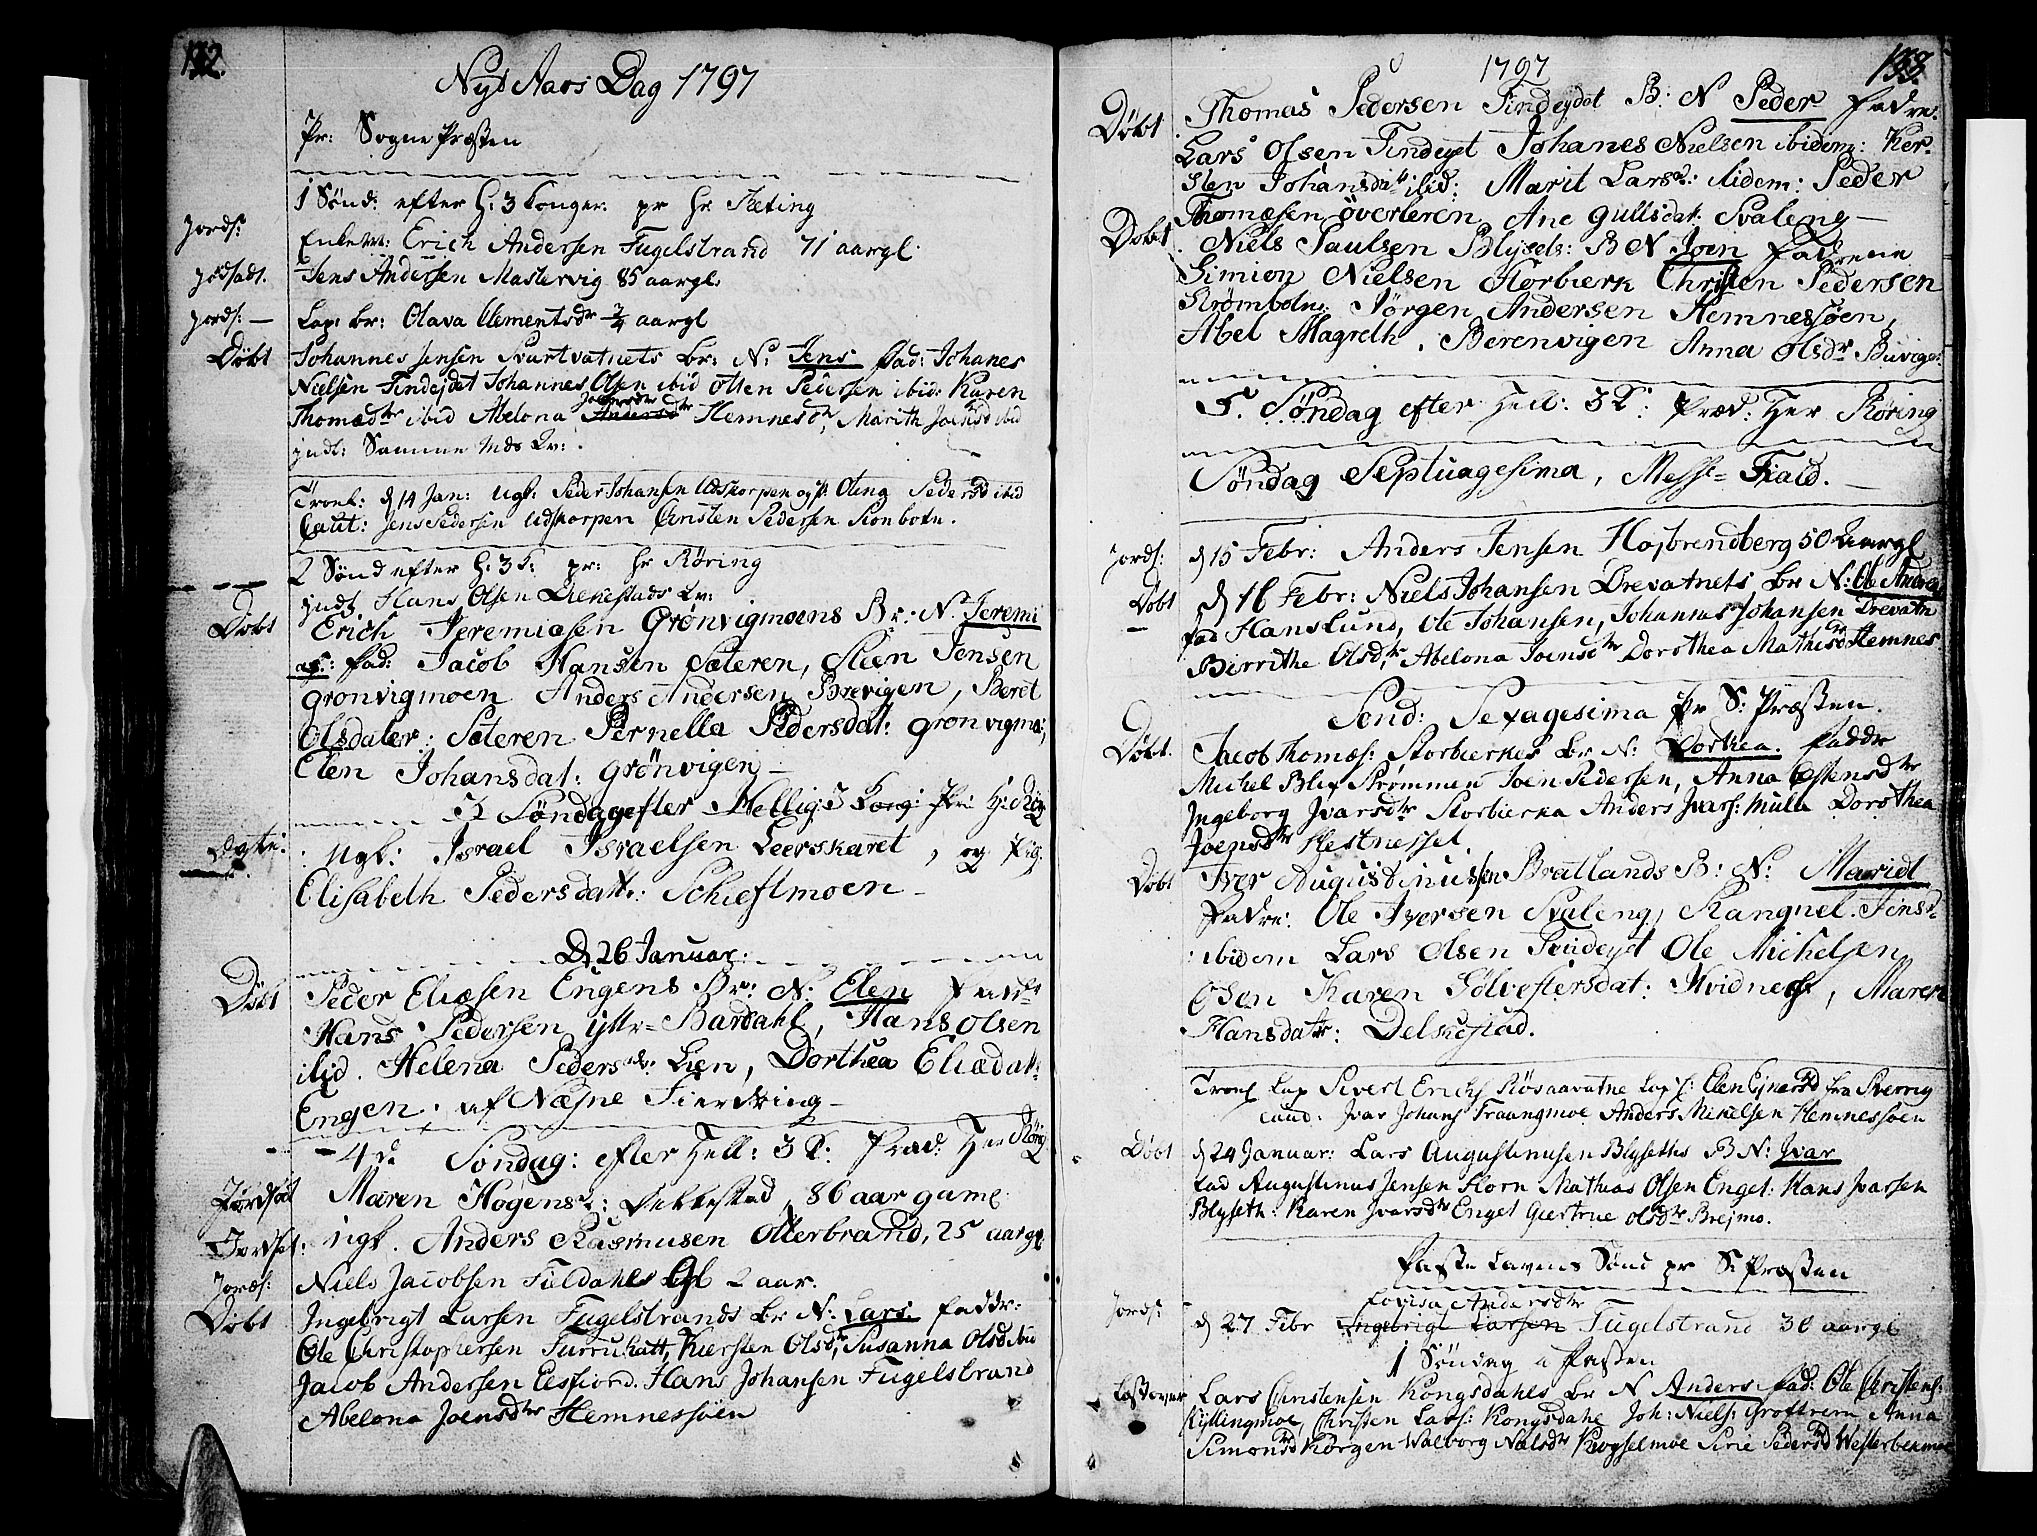 132.
Nyt Aars Dag 1797
Pr: Sogne Præsten
1 Sønd: efter H: 3 Konger: pr hr Røring
Jords: Enkem: Erich Andersen Fugelstrand 71 aar gl.
Jordsadt. Jens Andersen Mastervig 85 aar gl.
Jords: — Lap: br: Olava Clementsdr 3/4 aar gl
Døbt Johannes Jensen Svartvatnets br: N: Jens fad: Johanes
Nielsen Findejdet Johannes Olsen ibid Olsen Pedersen ibid: Karen
Thomædtr ibid Abelona Joensdr Andersdtr Hemnesø, Marith Joensd ibid
jndl: Samme Mds Kv:
Trol: d 14 Jan: Ugk: Peder Johansen Udskorpen og P: Olina Pedersd ibid
Caut: Jens Pedersen Udskorpen Christen Pedersen Ronbotn.
2 Sønd efter H: 3 K: pr: hr Røring
jndl Hans Olsen Dilkestads Kv:
Døbt Erich Jeremiasen Grønvigmoens Br: N. Jeremi
as: fad: Jacob Hansen Sæteren, Steen Jensen
Grønvigmoen Anders Andersen Brevigen, Beret
Olsdater: Sæteren Pernella Pedersdat: Grønvigmo:,
Elen Johansdat: Grønvigen —
3 Søndag efter Hellig: 3 Kong: Pr: H: Røring
Ugk: Israel Israelsen Leerskaret, og Pig:
Elisabeth Pedersdatt: Schieftmoen —
D 26 Januar:
Døbt Peder Eliæsen Engens Br: N: Elen Fad:
Hans Pedersen yttr=Bardahl, Hans Olsen
ibid. Helena Pedersdr: Lien, Dorthea Eliædat:
Engen. af Næsne Fierdting —
4de Søndag: efter Hell: 3 K: Præd: Her Røring
Jordsat Maren Hogensd: Dilkestad, 86 aar gamel
Jordsat: Ugk. Anders Rasmusen Otterbrand, 25 aar gl.
Jords: Niels Jacobsen Fieldahls Gl 2 aar.
Døbt Ingebrigt Larsen Fugelstrands br N: Lars faddr:
Ole Christophersen Furruhatt, Kiersten Olsdr, Susanna Olsd ibid
Jacob Andersen Eesfiord. Hans Johansen Fugelstrand
Abelona Joensdtr Hemnessøen
1797
133.
Døbt Thomas Pedersen Findeydet B: N Peder Fadre:
Lars Olsen Findeyt Johanes Nielsen ibidem: Ker-
sten Johansdat: ibid: Marit Larsd: ibidem: Peder
Thomæsen Øverleren Ane Gullsdat: Svaleng —
Døbt Niels Paulsen Blysels: B N Joen Fadrene
Simion Nielsen Storbierk Christen Pedersen
Strømbotn: Jørgen Andersen Hemnessøen,
Abel Magreth. Berenvigen Anna Olsdr Buvige:
5. Søndag efter Hell: 3 K: Præd: Her Røring
Søndag Septuagesima, Messe-Fald.
Jords: d 15 Febr: Anders Jensen Højbrendberg 50 Aar gl
Døbt d 16 Febr: Niels Johansen Drevatnets br N: Ole Andreas
fad Hans Lund, Ole Johansen, Johannes Johansen Drevatn
Birrithe Olsdtr, Abelona Joensdtr Dorothea Mathisdr Hemnes
Sønd: Sexagesima Pr S: Præsten.
Døbt. Jacob Thomæs: Storbierkes br N: Dorthea. faddr
Michel Blix Strømmen Joen Pedersen, Anna Estensdtr
Ingeborg Jvarsdtr Storbierka Anders Jvars: Mula Dorothea
Joensdtr Hestnesset.
Døbt Iver Augustinussen Bratlands B: N: Maridt
Fadre: Ole Iversen Svaleng, Rangnel. Finsd:
ibidem Lars Olsen Findeyd Ole Michelsen
Osen Karen Sølvestersdat: Hvidnes, Maren
Hansdatr: Delkestad.
Trol Lap Sivert Erichs Røsaavatne Lap P: Elen Ejnersd fra Sverrig
Caud: Jvar Johans Fraangmoe Anders Mikelsen Hemnessøen
Døbt d 24 Januar: Lars Augustinusen Blyseths B N: Jvar
fad Augustinus Jensen Horn Mathias Olsen Enget: Hans Jvarsen
Blyseth: Karen Jvarsdtr Enget Giertrue Olsdtr Brejmo.
Faste Lavens Sønd pr S: Præsten
Jords: d 27 Febr Lovisa Andersdtr Ingebrigt Larsen Fugelstrand 30 aar gl
1 Søndag i Fasten
Lars Christensen Kongsdahls br N Anders fad: Ole Christens:
Kyllingmoe, Christen Lars: Kongsdahl Joh: Niels: Groftrem Anna
Simonsd Korgen Walborg Nælsdr Krogselmoe Sirie Pedersd Westerbexmoe